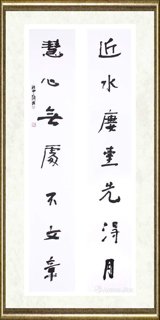 近水廔臺先得月
慧心無處不文章